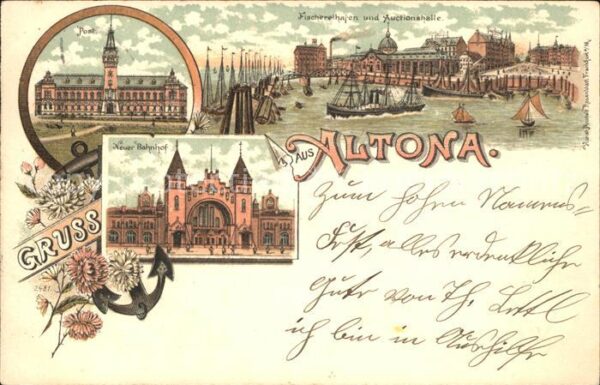 Post.
Fischereihafen und Auctionshalle.
Neuer Bahnhof
GRUSS
AUS
ALTONA.
2481
Zum hohen Namens-
fest, alles erdenkliche
Gute von Th.
ich bin in Aushilfe